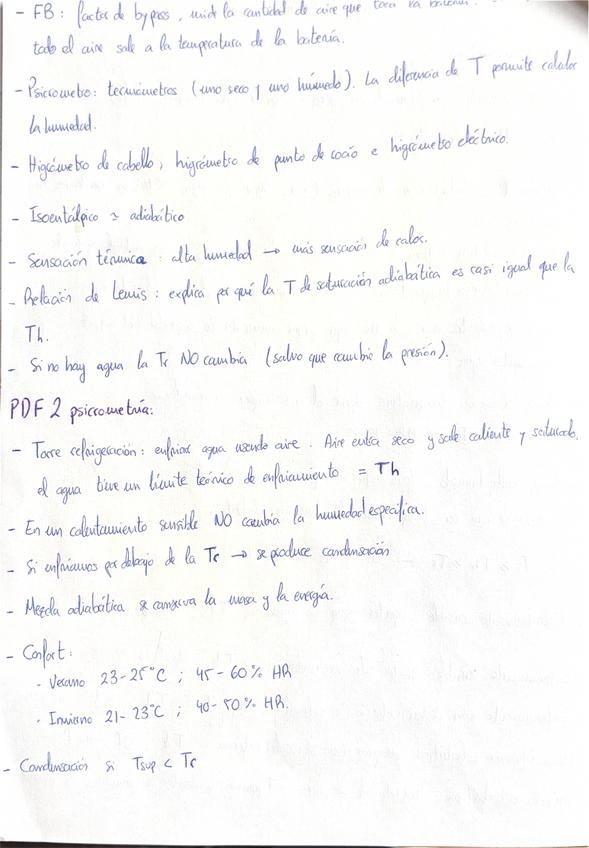 - FB: factor de bypass, mide la cantidad de aire que toca la batería.
todo el aire sale a la temperatura de la batería.
- Psicrometro: termómetros (uno seco y uno húmedo). La diferencia de T permite calcular
la humedad.
- Higrómetro de cabello, higrómetro de punto de rocío e higrómetro eléctrico.
- Isoentálpico ≈ adiabático
- Sensación térmica: alta humedad → más sensación de calor.
- Relación de Lewis: explica por qué la T de saturación adiabática es casi igual que la
Th.
- Si no hay agua la Tr NO cambia (salvo que cambie la presión).
PDF 2 psicrometría:
- Torre refrigeración: enfriar agua usando aire. Aire entra seco y sale caliente y saturado.
el agua tiene un límite teórico de enfriamiento = Th
- En un calentamiento sensible NO cambia la humedad específica.
- Si enfriamos por debajo de la Tr → se produce condensación
- Mezcla adiabática se conserva la masa y la energía.
- Confort:
· Verano 23-25°C ; 45-60% HR
· Invierno 21-23°C ; 40-50% HR.
- Condensación si Tsup < Tr